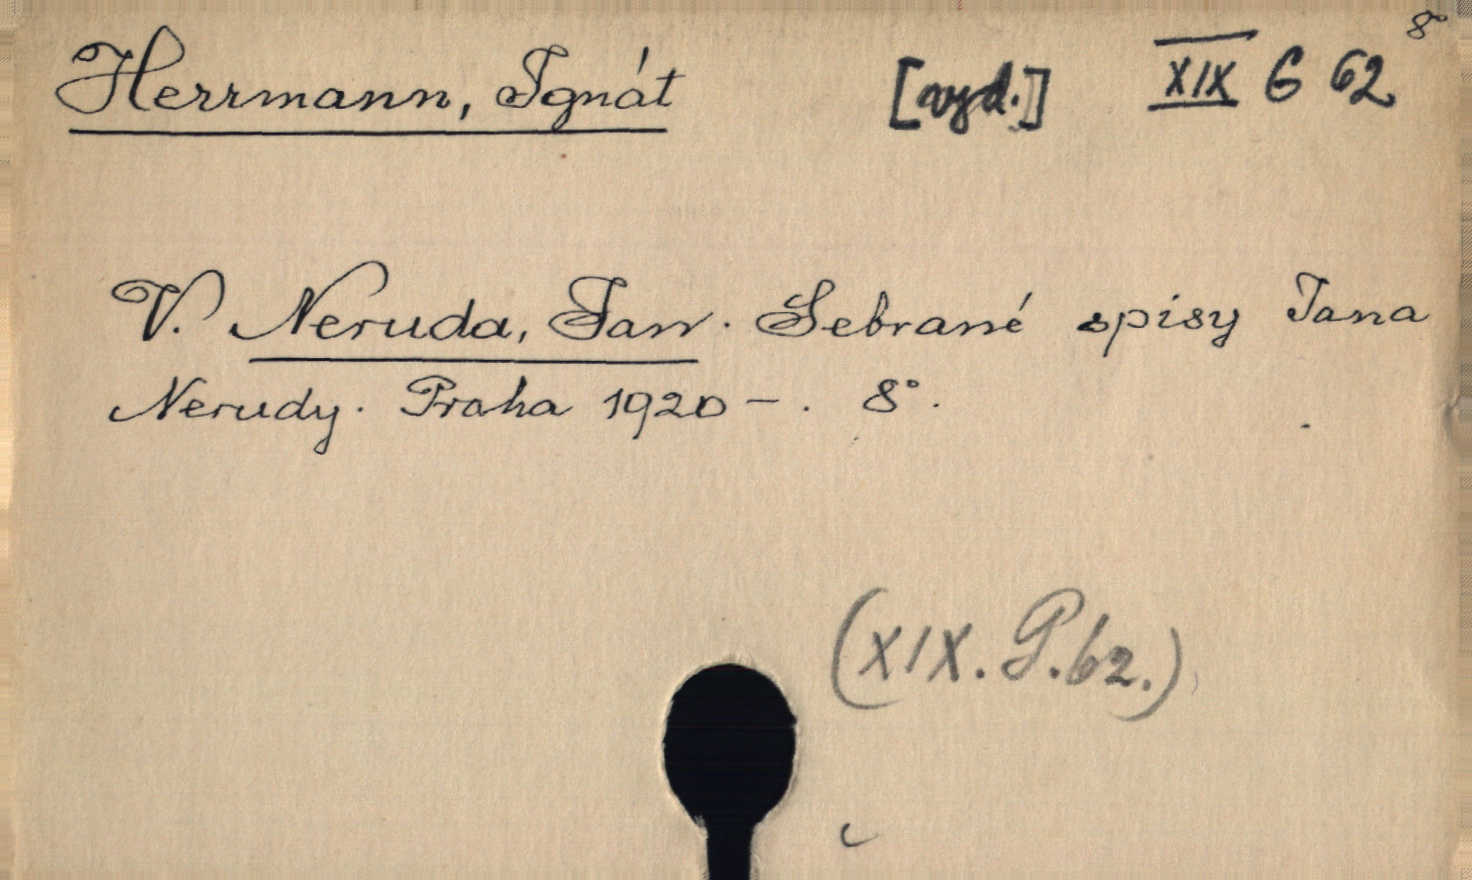 Herrmann, Ignát [vyd.] XIX G 62
8°
V. Neruda, Jan. Sebrané spisy Jana
Nerudy. Praha 1920 - . 8°.
(XIX. G. 62.)